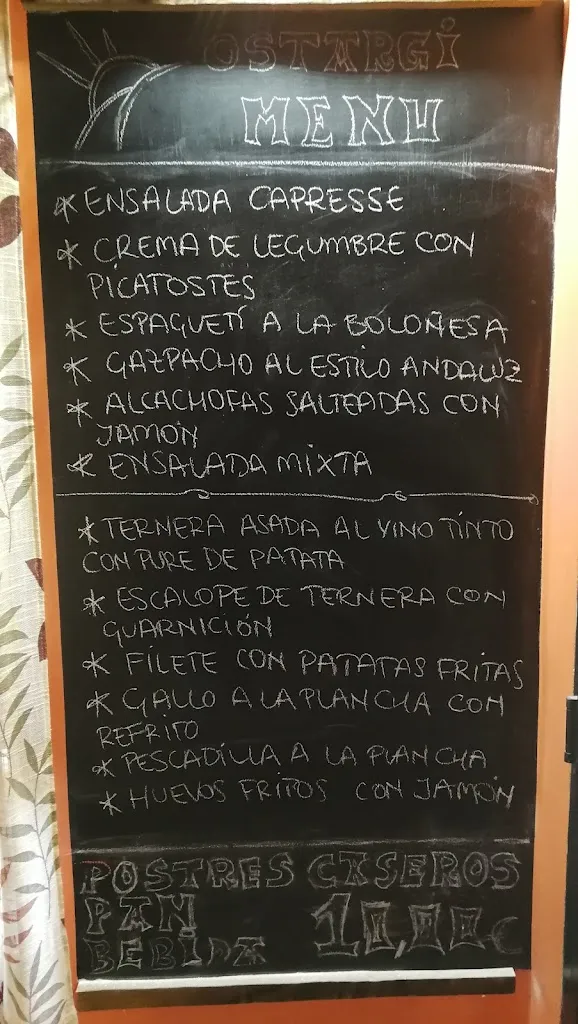 OSTARGI
MENU
* ENSALADA CAPRESSE
* CREMA DE LEGUMBRE CON
PICATOSTES
* ESPAGUETÍ A LA BOLOÑESA
* GAZPACHO AL ESTILO ANDALUZ
* ALCACHOFAS SALTEADAS CON
JAMON
* ENSALADA MIXTA
* TERNERA ASADA AL VINO TINTO
CON PURE DE PATATA
* ESCALOPE DE TERNERA CON
GUARNICIÓN
* FILETE CON PATATAS FRITAS
* GALLO A LA PLANCHA CON
REFRITO
* PESCADILLA A LA PLANCHA
* HUEVOS FRITOS CON JAMÓN
POSTRES CASEROS
PAN 10,00€
BEBIDA